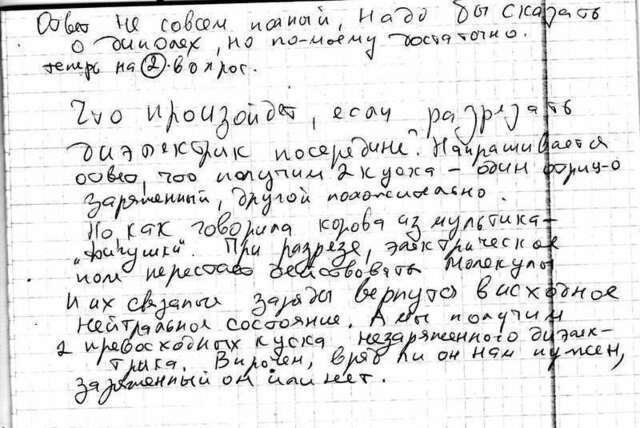 Ответ не совсем полный, надо бы сказать
о диполях, но по-моему достаточно.
теперь на 2 вопрос.
Что произойдет, если разрезать
диэлектрик посередине. Напрашивается
ответ, что получим 2 куска – один отриц-о
заряженный, другой положительно.
Но как говорила корова из мультика –
„фигушки“. При разрезе, электрическое
поле перестает действовать молекулы
и их связаные заряды вернутся в исходное
нейтральное состояние. А мы получим
2 превосходных куска незаряженного диэлек-
трика. Впрочем, вряд ли он нам нужен,
заряженный он или нет.